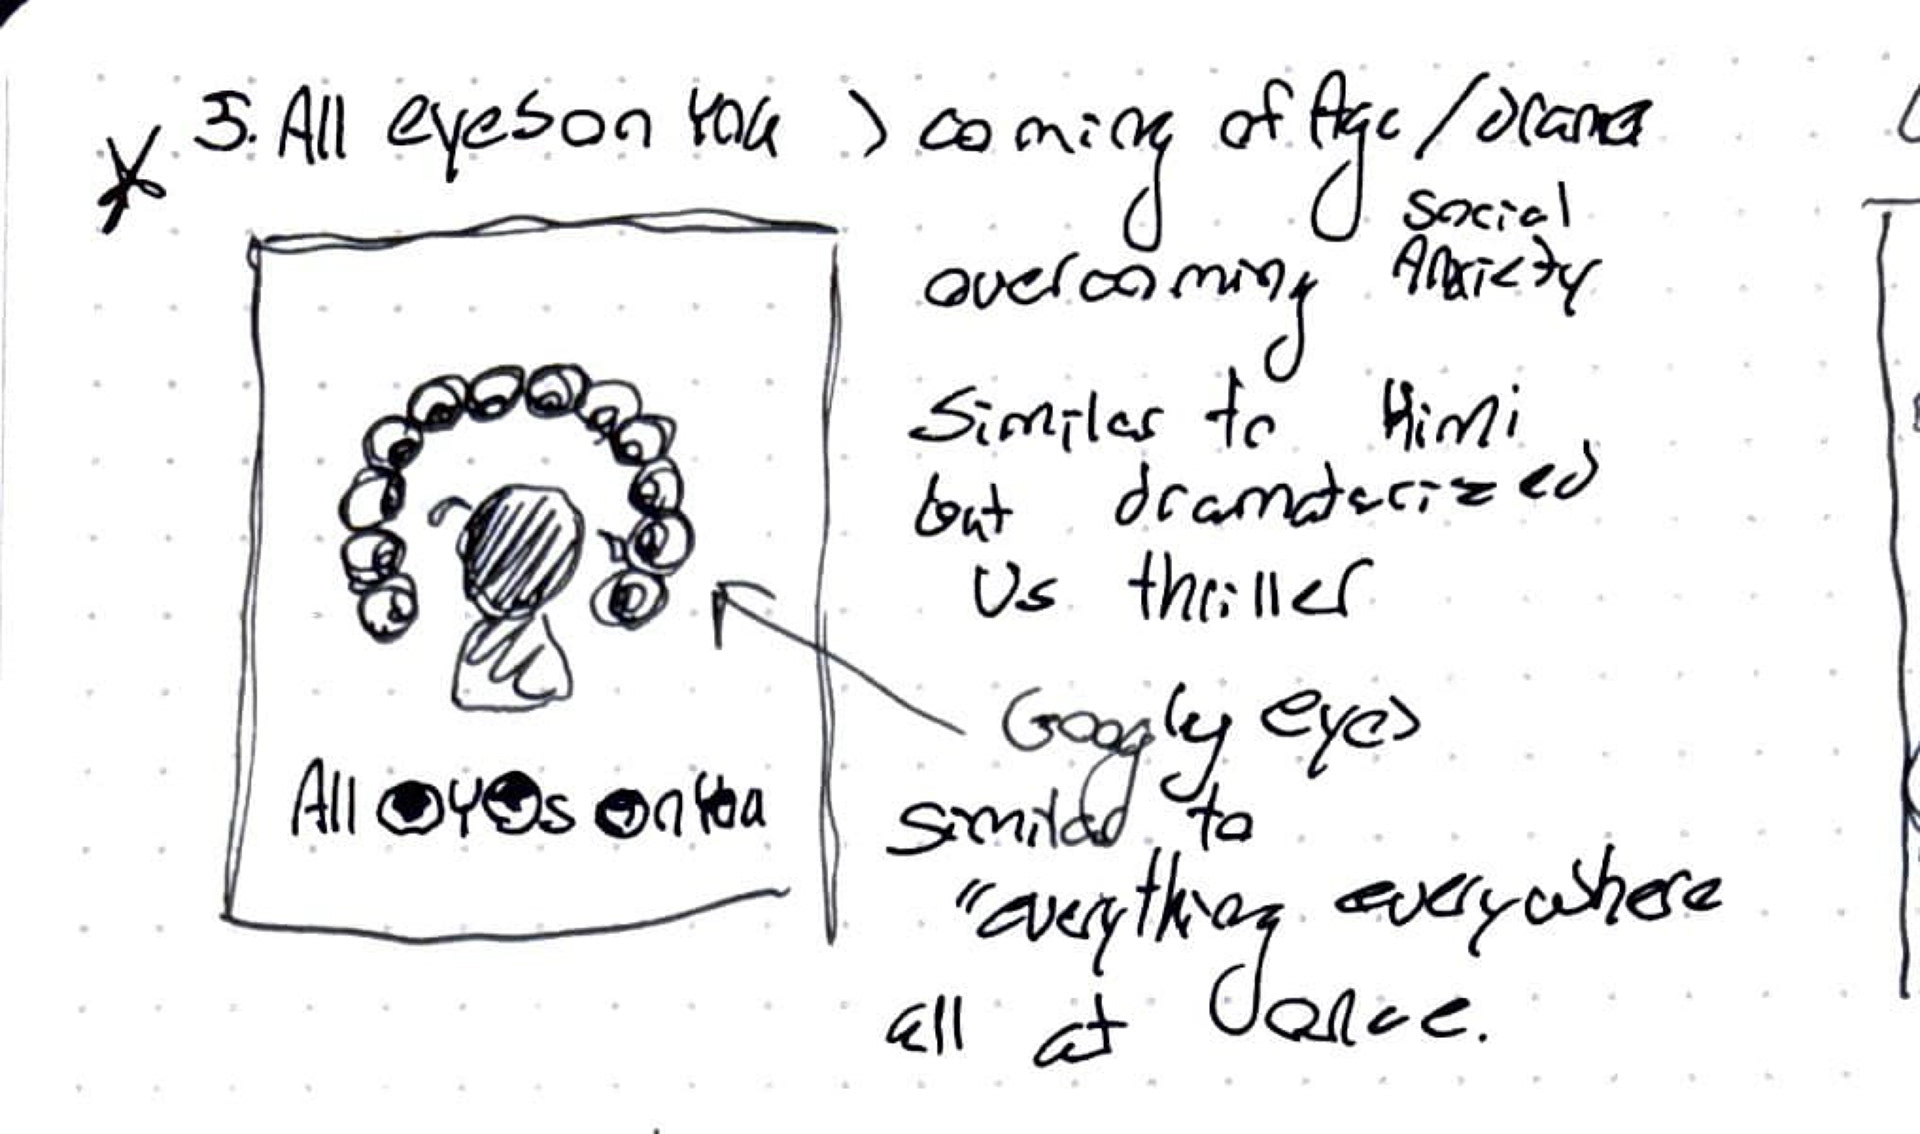 5. All eyes on You
coming of Age / drama
overcoming social Anxiety
Similar to Kimi
but dramaterized
Vs thriller
Googly eyes
similar to
"everything everywhere
all at once.
All eyes on You